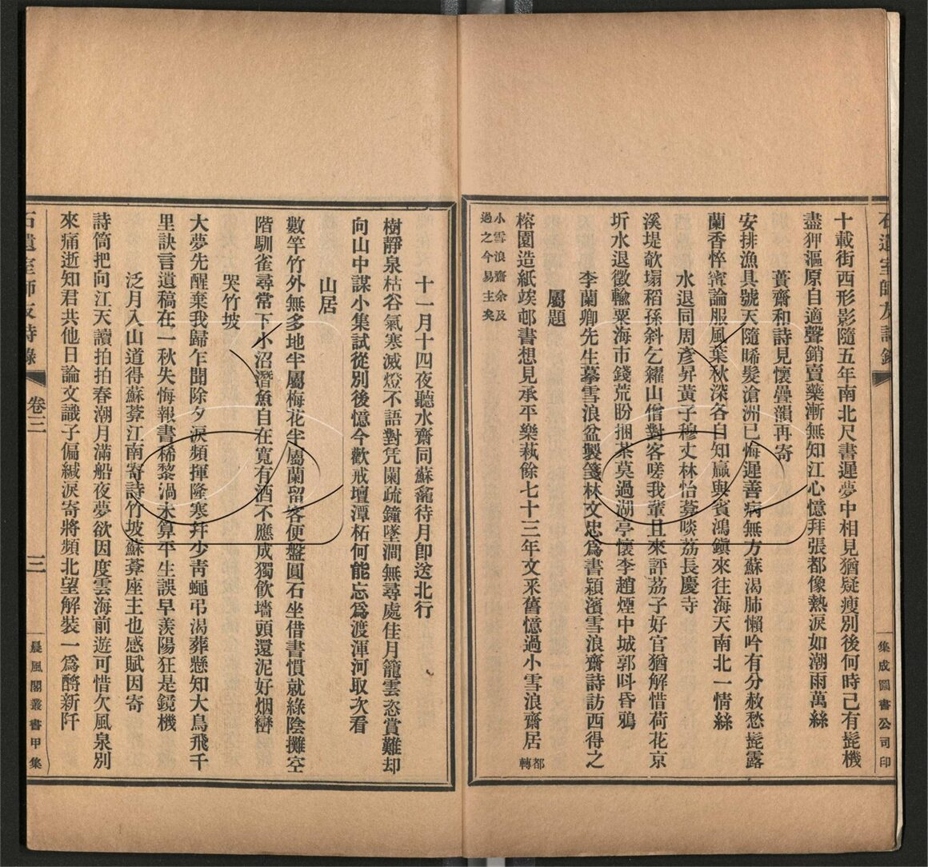 石遺室師友詩錄
集成圖書公司印
十載街西形影隨五年南北尺書遲夢中相見猶疑瘦別後何時已有髭機
盡狎漚原自適聲銷賣藥漸無知江心憶拜張都像熱淚如潮雨萬絲
蕡齋和詩見懷疊韻再寄
安排漁具號天隨晞髮滄洲已悔遲善病無方蘇渴肺懶吟有分赦愁髭露
蘭香悴甯論服風葉秋深各自知羸與賓鴻鎮來往海天南北一情絲
水退同周彥昇黃子穆丈林怡葊啖荔長慶寺
溪堤欹塌稻孫斜乞糴山僧對客嗟我輩且來評荔子好官猶解惜荷花京
圻水退徵輸粟海市錢荒盼捆茶莫過湖亭懷李趙煙中城郭叫昏鴉
李蘭卿先生摹雪浪盆製箋林文忠為書潁濱雪浪齋詩訪西得之
屬題
榕園造紙竢邨書想見承平樂蓺餘七十三年文采舊憶過小雪浪齋居
都轉
小雪浪齋余及
過之今易主矣
十一月十四夜聽水齋同蘇龕待月卽送北行
樹靜泉枯谷氣寒滅燈不語對凭闌疏鐘墜澗無尋處佳月籠雲恣賞難却
向山中謀小集試從別後憶今歡戒壇潭柘何能忘為渡渾河取次看
山居
數竿竹外無多地半屬梅花半屬蘭留客便盤圓石坐借書慣就綠陰攤空
階馴雀尋常下小沼潛魚自在寬有酒不應成獨飲墻頭還泥好烟巒
哭竹坡
大夢先醒棄我歸乍聞除夕淚頻揮隆寒并少靑蠅弔渴葬懸知大鳥飛千
里訣言遺稿在一秋失悔報書稀黎渦未算平生誤早羨陽狂是鏡機
泛月入山道得蘇葊江南寄詩竹坡蘇葊座主也感賦因寄
詩筒把向江天讀拍拍春潮月滿船夜夢欲因度雲海前遊可惜欠風泉別
來痛逝知君共他日論文識子偏緘淚寄將頻北望解裝一為酹新阡
石遺室師友詩錄
卷三
三
晨風閣叢書甲集